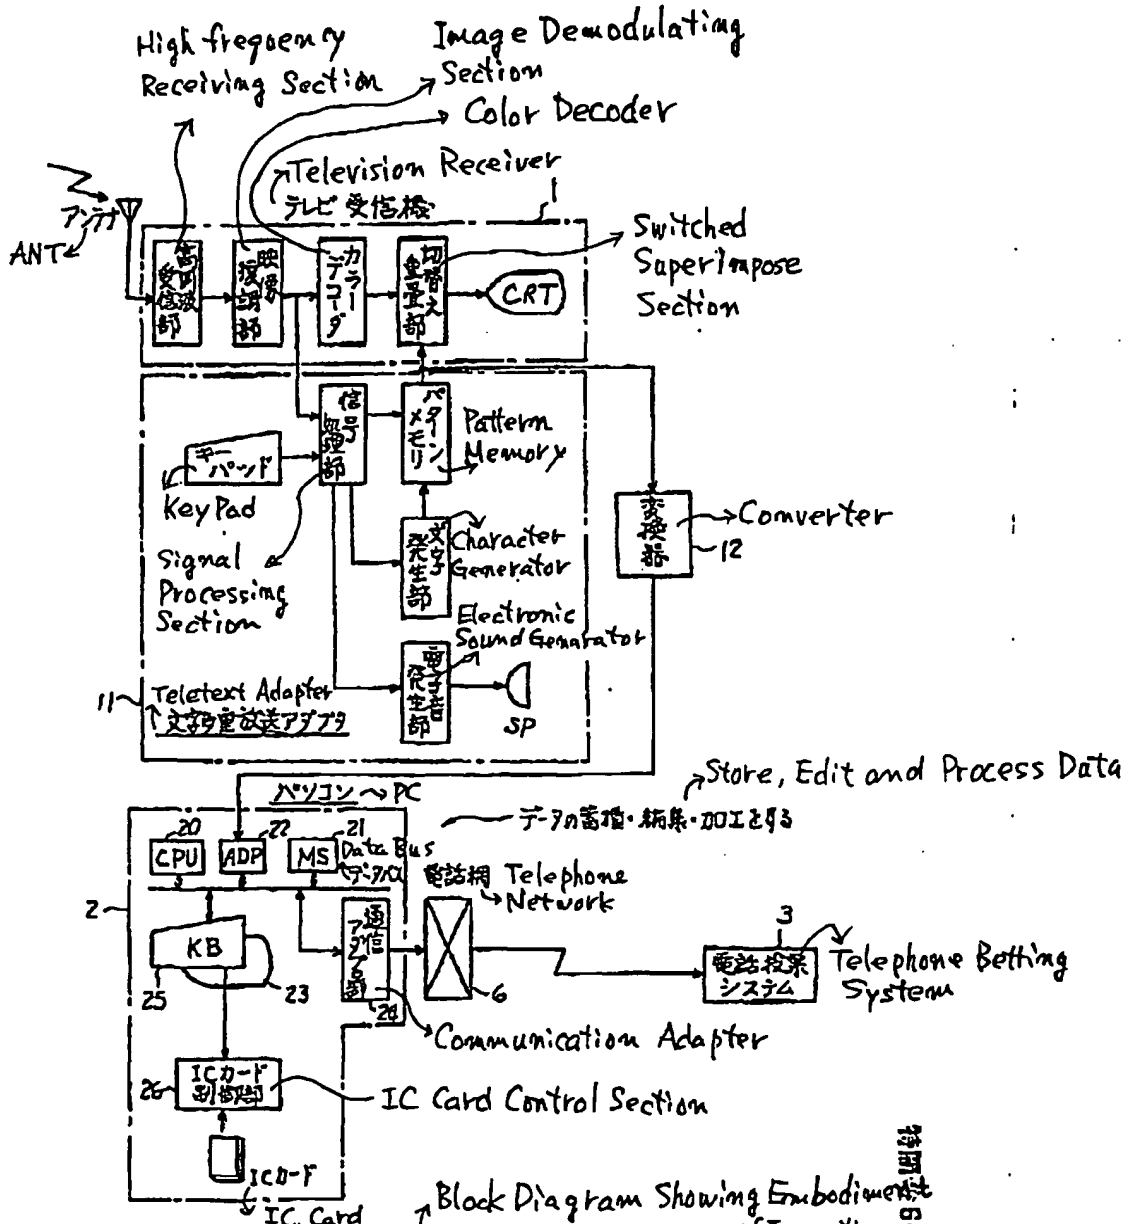 High frequency
Receiving Section
Image Demodulating
Section
Color Decoder
Television Receiver
テレビ受信機
1
アンテナ
ANT
高周波
受信部
映像
復調部
カラー
デコーダ
切替え
重畳部
CRT
Switched
Superimpose
Section
キー
パッド
Key Pad
信号
処理部
Signal
Processing
Section
パターン
メモリ
Pattern
Memory
文字
発生部
Character
Generator
電子音
発生部
Electronic
Sound Genarator
SP
変換器
Converter
12
11
Teletext Adapter
文字多重放送アダプタ
パソコン PC
Store, Edit and Process Data
データの蓄積・編集・加工をする
20
CPU
22
ADP
21
MS
Data Bus
データバス
電話網 Telephone
Network
2
KB
25
23
通信
アダプタ部
24
6
3
電話投票
システム
Telephone Betting
System
Communication Adapter
26
ICカード
制御部
IC Card Control Section
ICカード
IC Card
Block Diagram Showing Embodiment